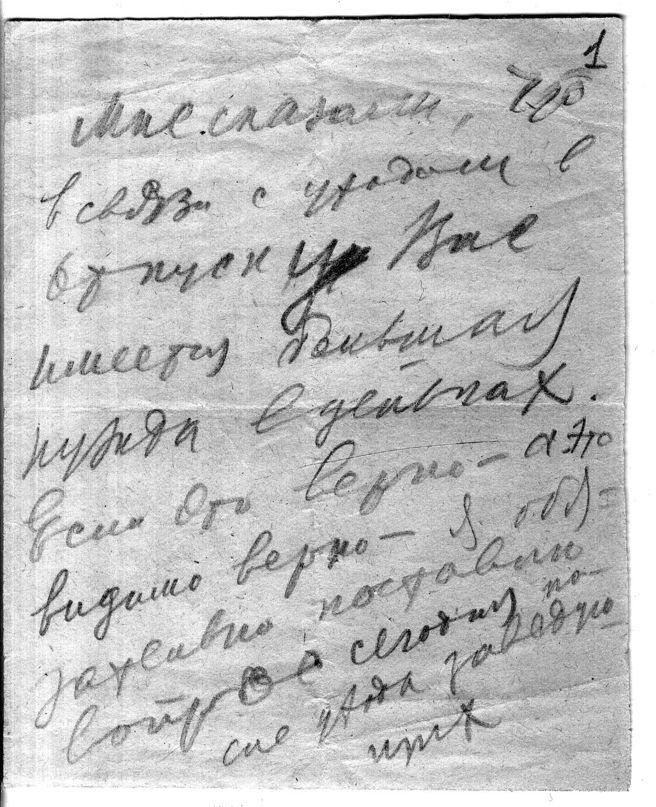 1
Мне сказали, что
в связи с уходом в
отпуск у Вас
имеется большая
нужда в деньгах.
Если это верно – а это
видимо верно – я обя-
зательно поставлю
вопрос сегодня по-
сле ухода заведую-
щих